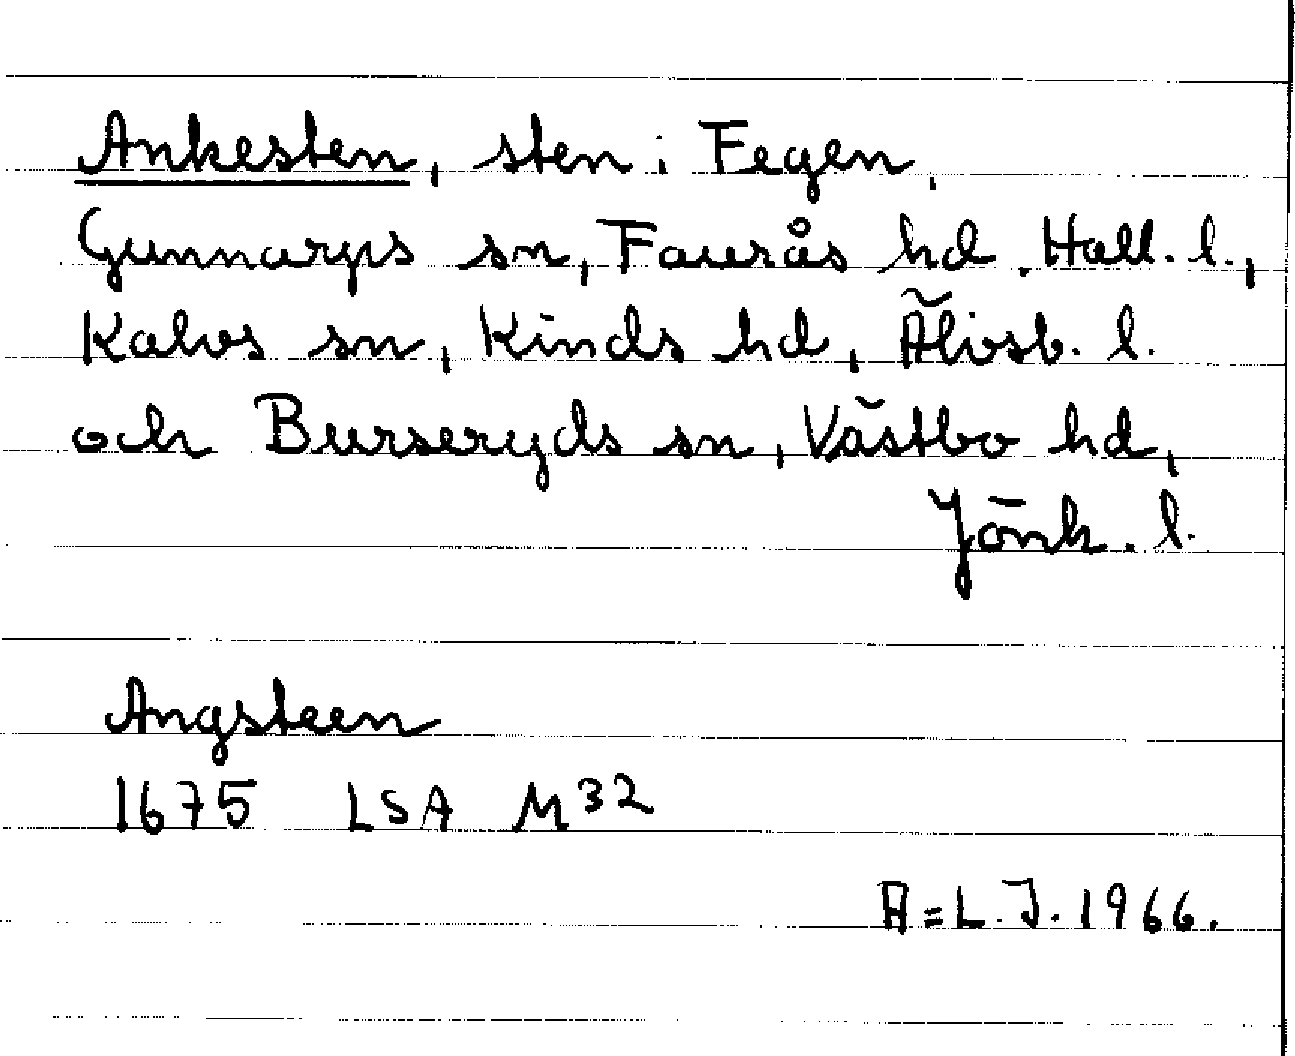 Ankesten, sten i Fegen,
Gunnarps sn, Faurås hd, Hall. l.,
Kalvs sn, Kinds hd, Älvsb. l.
och Burseryds sn, Västbo hd,
Jönk. l.
Angsteen
1675 LSA M32
A=L. J. 1966.